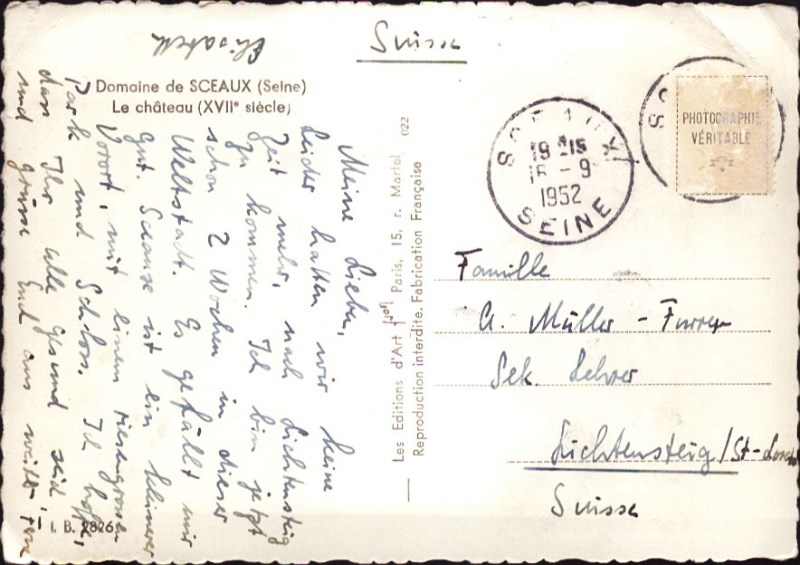 Elisabeth
Suisse
Domaine de SCEAUX (Seine)
Le château (XVIIe siècle)
Meine Lieben,
Leider hatten wir keine
Zeit mehr, nach Lichtensteig
zu kommen. Ich bin jetzt
schon 2 Wochen in dieser
Weltstadt. Es gefällt mir
gut. Sceaux ist ein kleinerer
Vorort, mit einem riesengrossen
Park und Schloss. Ich hoffe,
dass Ihr alle gesund seid
und grüsse Euch aus weiter Ferne
I. B. 2826
Les Editions d'Art Paris, 15, r. Martel 022
Reproduction interdite. Fabrication Française
SCEAUX
19 15
16 - 9
1952
SEINE
PHOTOGRAPHIE
VÉRITABLE
Familie
A. Müller - Furrer
Sek. Lehrer
Lichtensteig / St-
Suisse